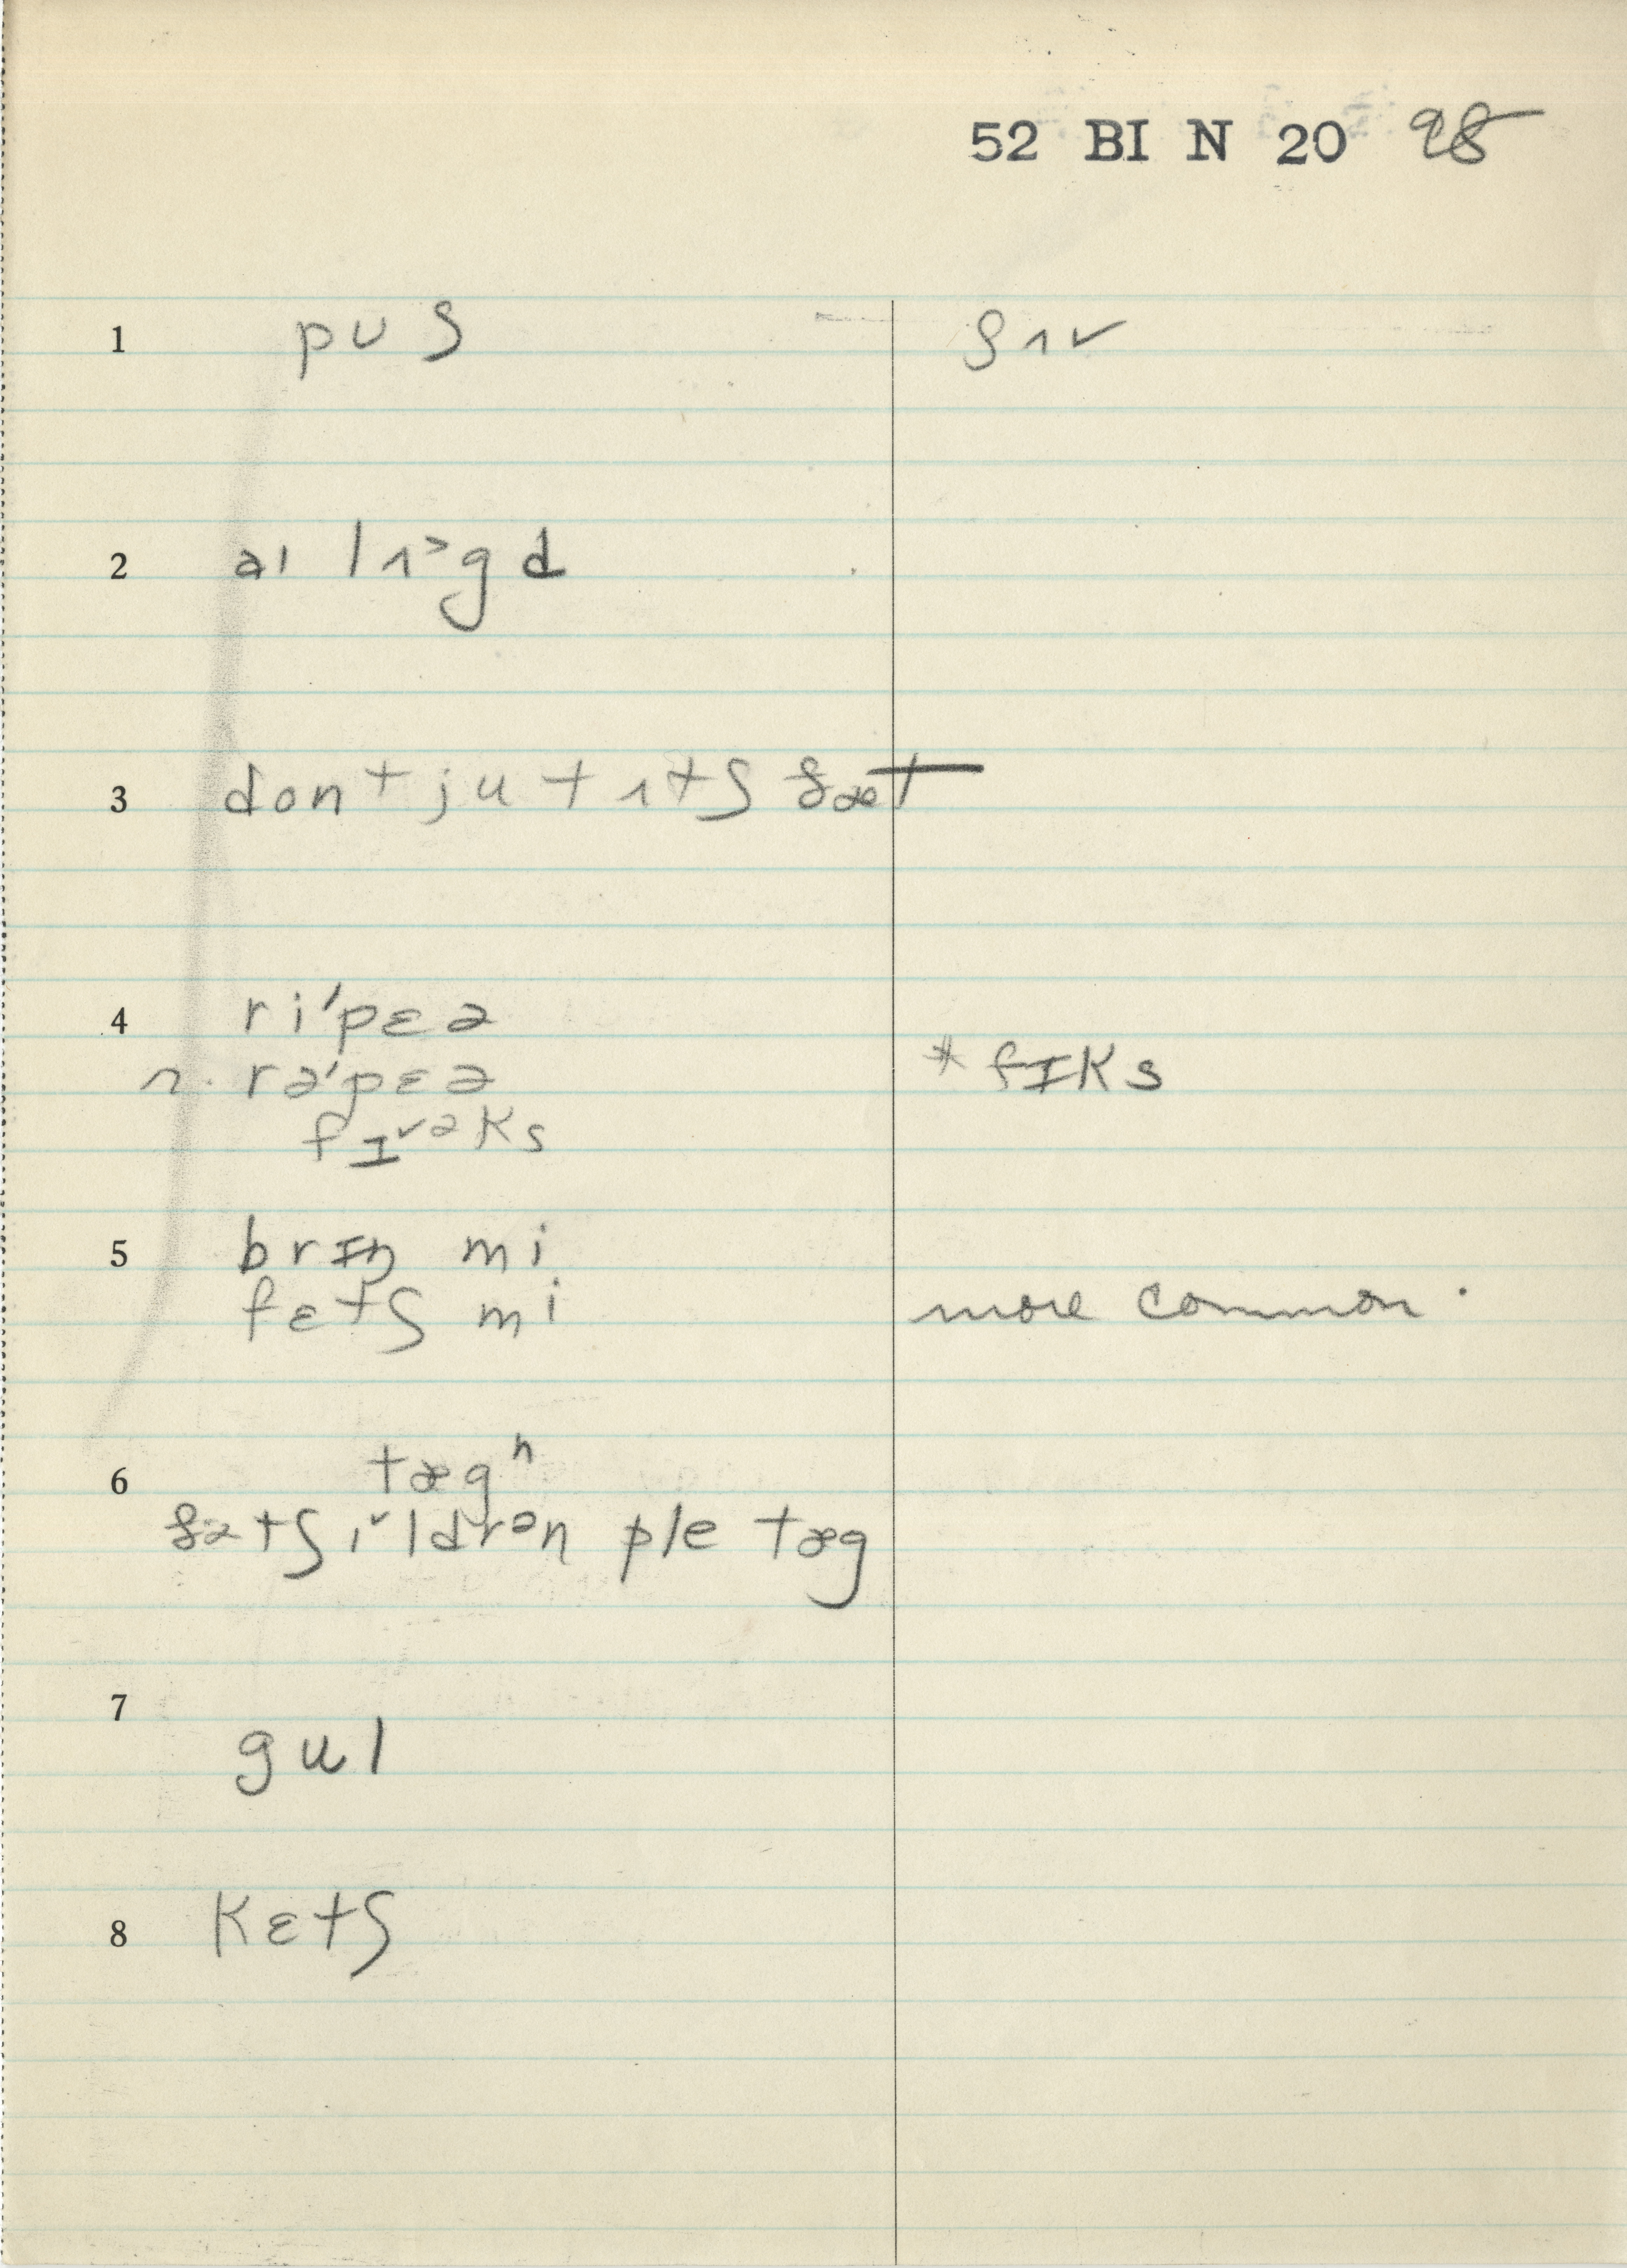 52 BI N 20 98
1 pʊʃ ʃʌv
2 aɪ lʌ˃gd
3 dont ju tʌtʃ ðæt
4 ri'pɛə
n. rə'pɛə *fɪks
fɪ˅əks
5 brɪŋ mi
fɛtʃ mi more common.
6 tægⁿ
ðətʃɪ˅ldrən ple tæg
7
gul
8 kɛtʃ